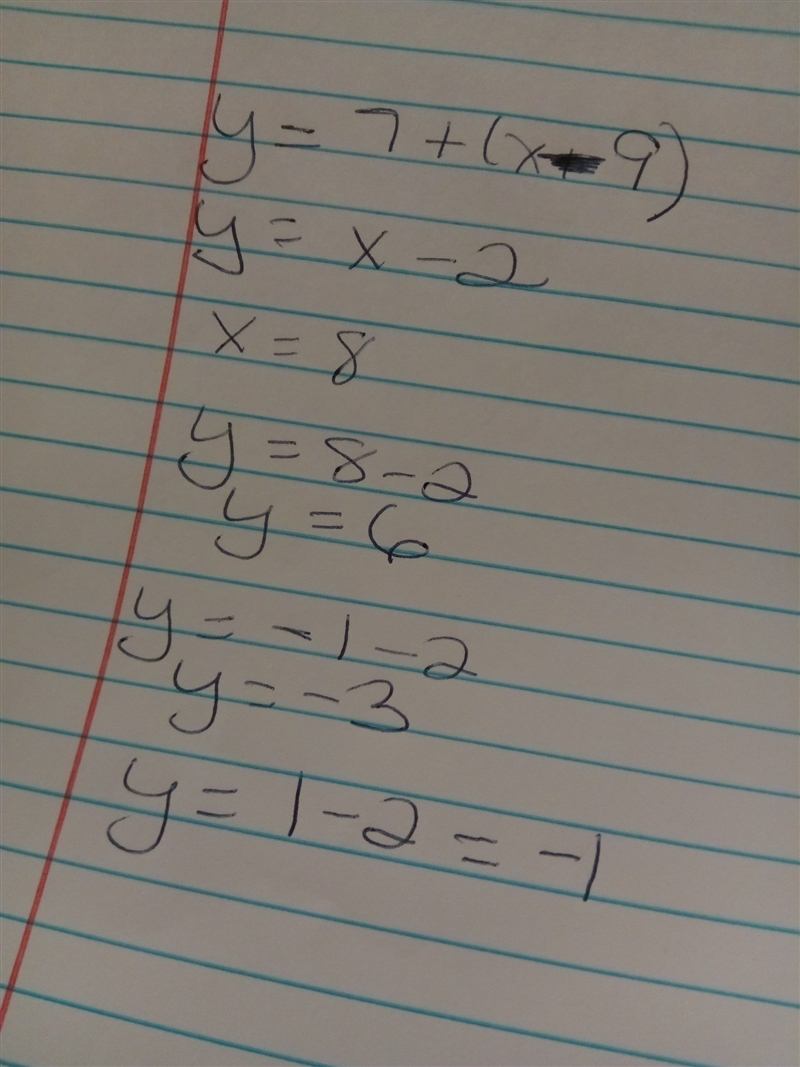 y = 7 + (x - 9)
y = x - 2
x = 8
y = 8 - 2
y = 6
y = -1 - 2
y = -3
y = 1 - 2 = -1